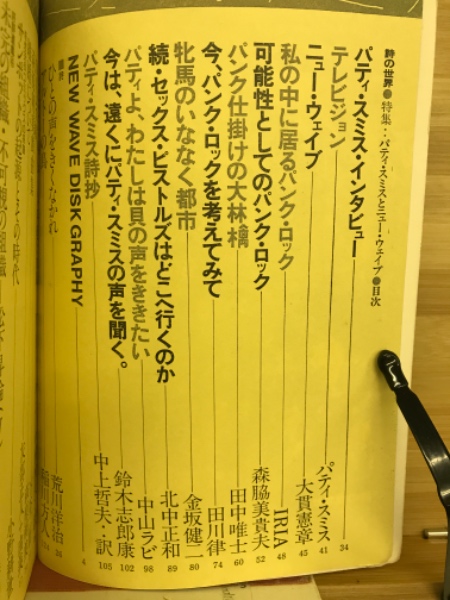 詩の世界●特集：パティ・スミスとニュー・ウェイブ●目次
パティ・スミス・インタビュー パティ・スミス 34
テレビジョン 41
ニュー・ウェイブ 大貫憲章 45
私の中に居るパンク・ロック IRIA 48
可能性としてのパンク・ロック 森脇美貴夫 52
パンク仕掛けの大林檎 田中唯士 60
今、パンク・ロックを考えてみて 田川律 74
牝馬のいななく都市 金坂健二 80
続・セックス・ピストルズはどこへ行くのか 北中正和 89
パティよ、わたしは貝の声をききたい 中山ラビ 98
今は、遠くにパティ・スミスの声を聞く。 鈴木志郎康 102
パティ・スミス詩抄 中上哲夫・訳 105
NEW WAVE DISKGRAPHY 4
ひとの声をきくなかれ 荒川洋治